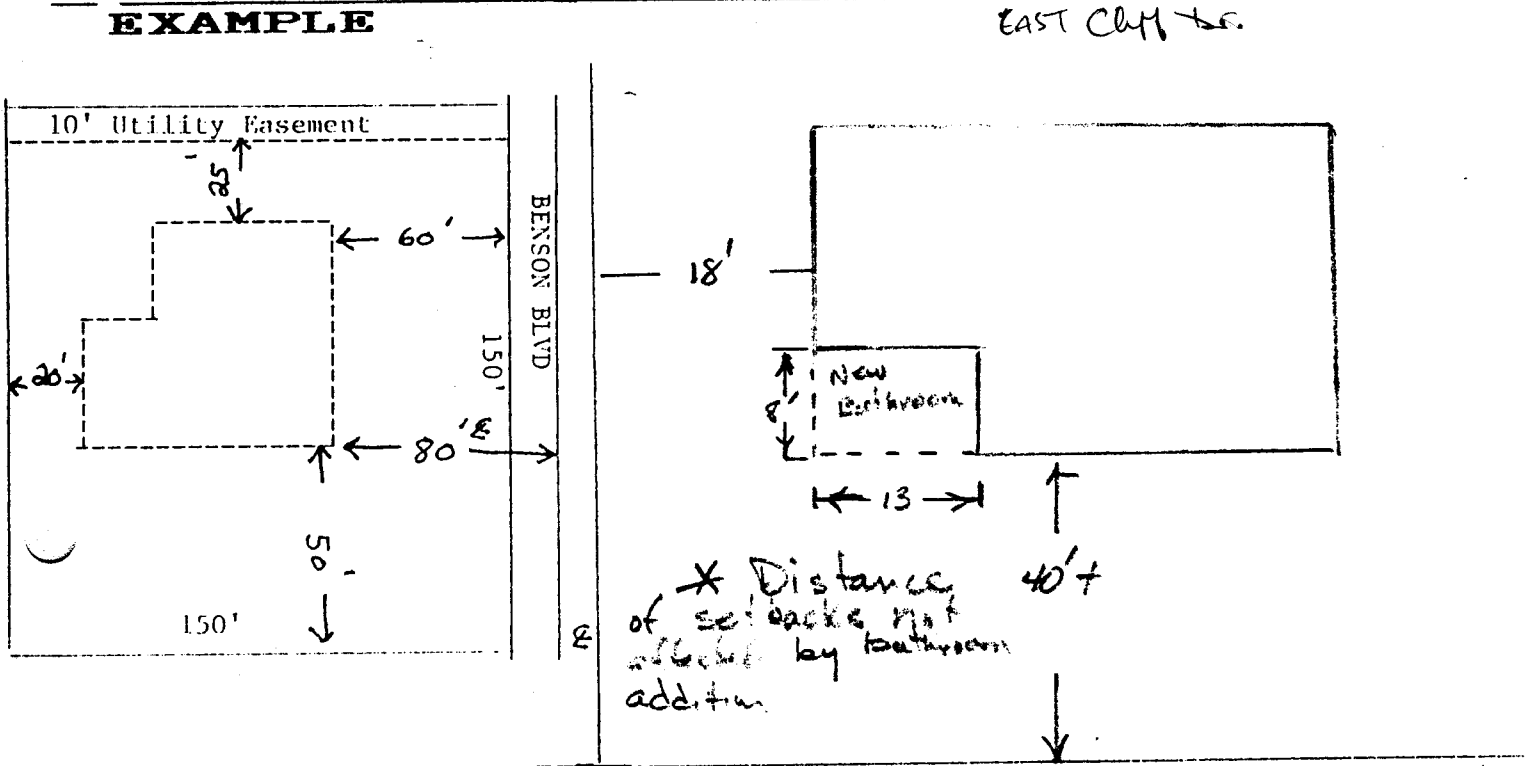 EXAMPLE
EAST Cliff Dr.
10' Utility Easement
25'
60'
BENSON BLVD
150'
20'
80' ℄
50'
150'
℄
18'
New
Bathroom
8'
13
40'+
* Distance
of setbacks not
by bathroom
addition